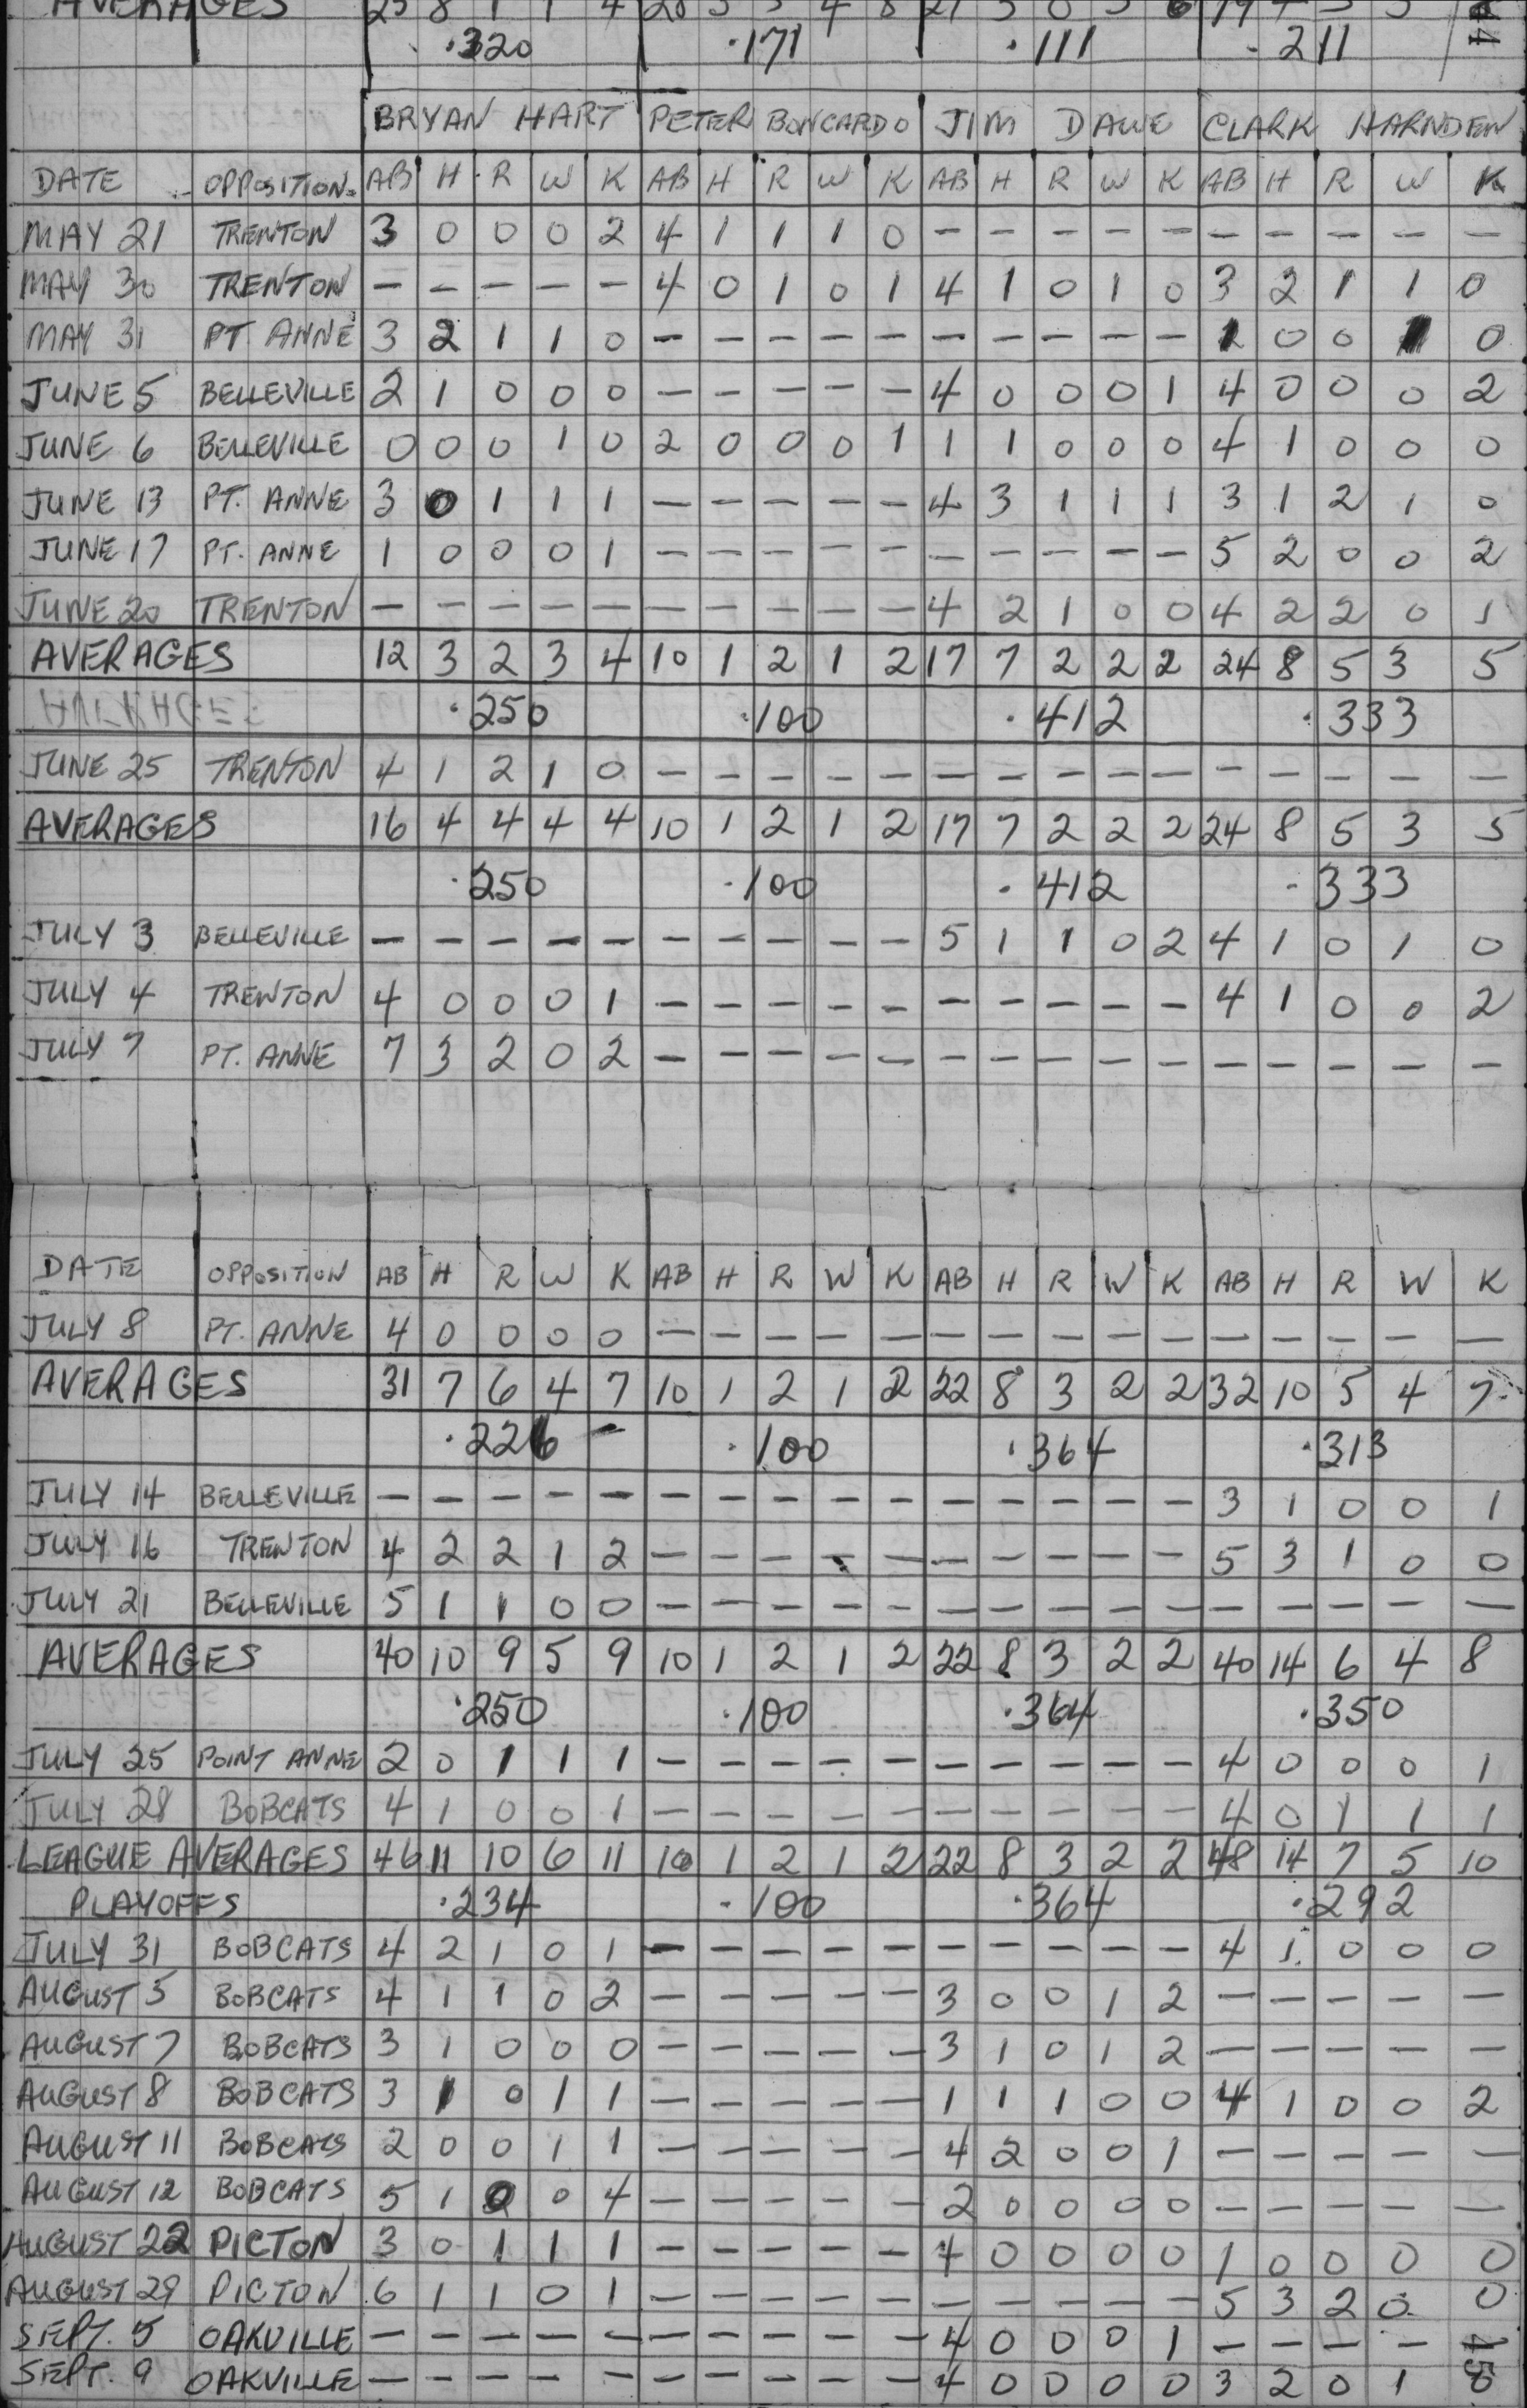 AVERAGES 25 8 1 1 4 20 5 3 4 8 27 3 0 3 6 19 4 3 3
.320 .171 .111 .211 44
BRYAN HART PETER BONCARDO JIM DAWE CLARK HARNDEN
DATE OPPOSITION AB H R W K AB H R W K AB H R W K AB H R W K
MAY 21 TRENTON 3 0 0 0 2 4 1 1 1 0 - - - - - - - - - -
MAY 30 TRENTON - - - - - 4 0 1 0 1 4 1 0 1 0 3 2 1 1 0
MAY 31 PT ANNE 3 2 1 1 0 - - - - - - - - - - 1 0 0 1 0
JUNE 5 BELLEVILLE 2 1 0 0 0 - - - - - 4 0 0 0 1 4 0 0 0 2
JUNE 6 BELLEVILLE 0 0 0 1 0 2 0 0 0 1 1 1 0 0 0 4 1 0 0 0
JUNE 13 PT. ANNE 3 0 1 1 1 - - - - - 4 3 1 1 1 3 1 2 1 0
JUNE 17 PT. ANNE 1 0 0 0 1 - - - - - - - - - - 5 2 0 0 2
JUNE 20 TRENTON - - - - - - - - - - 4 2 1 0 0 4 2 2 0 1
AVERAGES 12 3 2 3 4 10 1 2 1 2 17 7 2 2 2 24 8 5 3 5
.250 .100 .412 .333
JUNE 25 TRENTON 4 1 2 1 0 - - - - - - - - - - - - - - -
AVERAGES 16 4 4 4 4 10 1 2 1 2 17 7 2 2 2 24 8 5 3 5
.250 .100 .412 .333
JULY 3 BELLEVILLE - - - - - - - - - - 5 1 1 0 2 4 1 0 1 0
JULY 4 TRENTON 4 0 0 0 1 - - - - - - - - - - 4 1 0 0 2
JULY 7 PT. ANNE 7 3 2 0 2 - - - - - - - - - - - - - - -
DATE OPPOSITION AB H R W K AB H R W K AB H R W K AB H R W K
JULY 8 PT. ANNE 4 0 0 0 0 - - - - - - - - - - - - - - -
AVERAGES 31 7 6 4 7 10 1 2 1 2 22 8 3 2 2 32 10 5 4 7
.226 - .100 .364 .313
JULY 14 BELLEVILLE - - - - - - - - - - - - - - - 3 1 0 0 1
JULY 16 TRENTON 4 2 2 1 2 - - - - - - - - - - 5 3 1 0 0
JULY 21 BELLEVILLE 5 1 1 0 0 - - - - - - - - - - - - - - -
AVERAGES 40 10 9 5 9 10 1 2 1 2 22 8 3 2 2 40 14 6 4 8
.250 .100 .364 .350
JULY 25 POINT ANNE 2 0 1 1 1 - - - - - - - - - - 4 0 0 0 1
JULY 28 BOBCATS 4 1 0 0 1 - - - - - - - - - - 4 0 1 1 1
LEAGUE AVERAGES 46 11 10 6 11 10 1 2 1 2 22 8 3 2 2 48 14 7 5 10
PLAYOFFS .234 .100 .364 .292
JULY 31 BOBCATS 4 2 1 0 1 - - - - - - - - - - 4 1 0 0 0
AUGUST 5 BOBCATS 4 1 1 0 2 - - - - - 3 0 0 1 2 - - - - -
AUGUST 7 BOBCATS 3 1 0 0 0 - - - - - 3 1 0 1 2 - - - - -
AUGUST 8 BOBCATS 3 1 0 1 1 - - - - - 1 1 1 0 0 4 1 0 0 2
AUGUST 11 BOBCATS 2 0 0 1 1 - - - - - 4 2 0 0 1 - - - - -
AUGUST 12 BOBCATS 5 1 0 0 4 - - - - - 2 0 0 0 0 - - - - -
AUGUST 22 PICTON 3 0 1 1 1 - - - - - 4 0 0 0 0 1 0 0 0 0
AUGUST 29 PICTON 6 1 1 0 1 - - - - - - - - - - 5 3 2 0 0
SEPT. 5 OAKVILLE - - - - - - - - - - 4 0 0 0 1 - - - - -
SEPT. 9 OAKVILLE - - - - - - - - - - 4 0 0 0 0 3 2 0 1 0
45